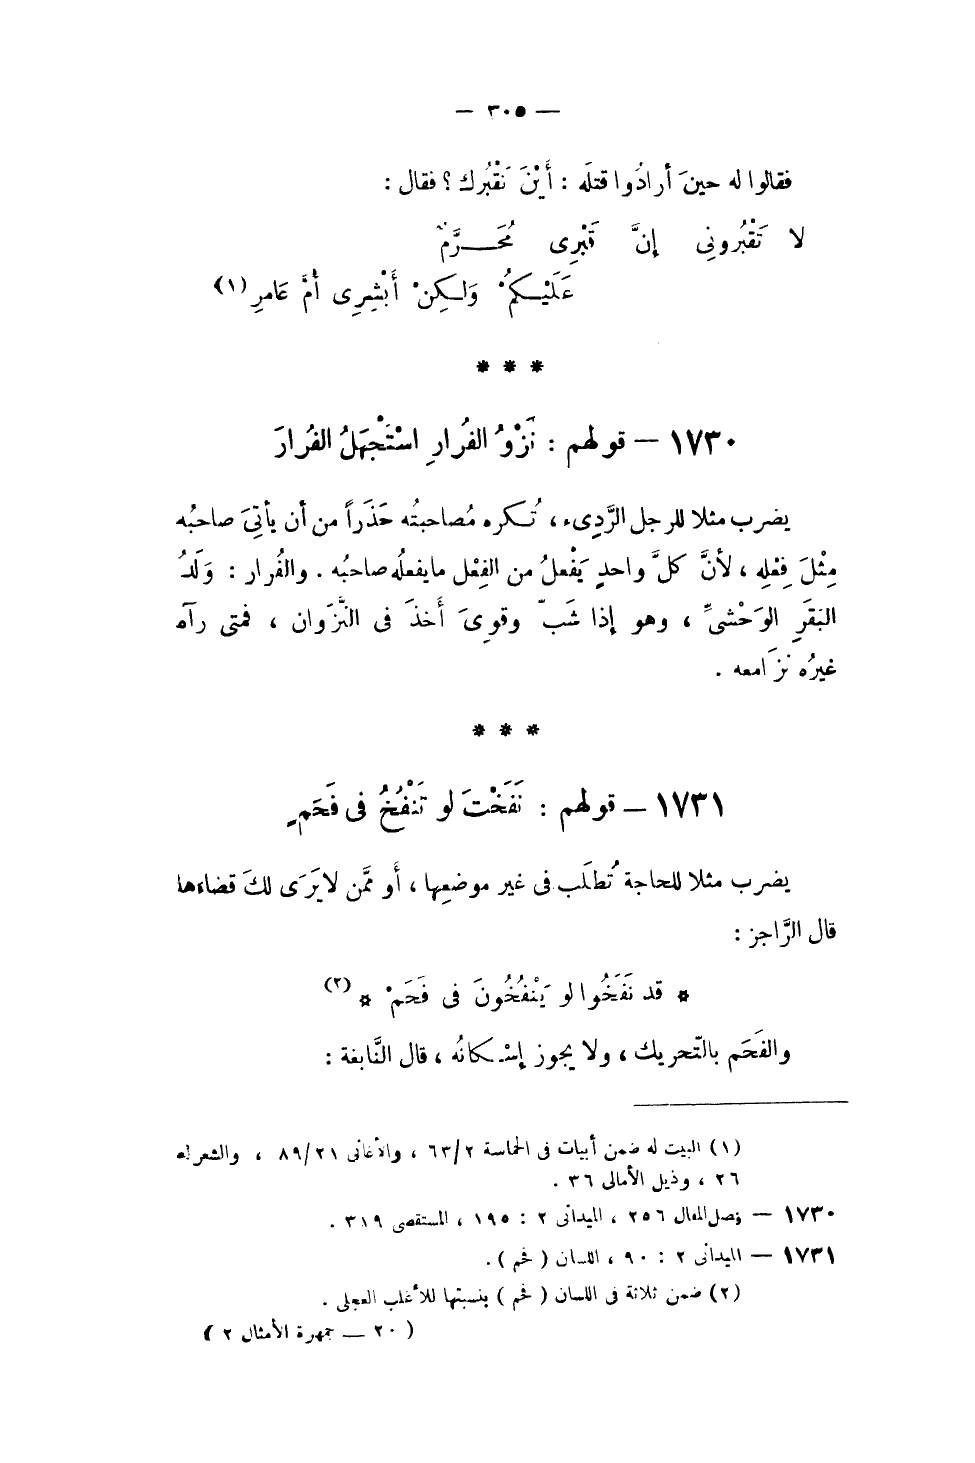 — ٣٠٥ —
فقالوا له حينَ أرادُوا قتلَه : أَيْنَ نَقْبُرك ؟ فقال :
لا تَقْبُرونِى إنَّ قَبْرِى مُحَـــرَّمٌ
عَلَيْـكُمْ وَلـكِنْ أَبْشِرِى أُمَّ عَامرِ (١)
* * *
١٧٣٠ — قولهم : نَزْوُ الفُرارِ اسْتَجْهَلُ الفُرارَ
يضرب مثلا للرجل الرَّدِىء ، تُـكره مُصاحبتُه حَذَراً من أن يأتِىَ صاحبُه
مِثْلَ فِعْلِه ، لأنَّ كلَّ واحدٍ يَفْعلُ من الفِعْل مايفعلُه صاحبُه . والفُرار : وَلَدُ
البَقَرِ الوَحْشىِّ ، وهو إذا شَبّ وقوِىَ أَخذَ فى النَّزَوان ، فمتى رآه
غيرُه نزَا معه .
* * *
١٧٣١ — قولهم : نَفَخْتَ لو تَنْفُخُ فى فَحَمٍ
يضرب مثلا للحاجة تُطلَب فى غير موضعِها ، أَو ممَّن لا يَرَى لكَ قضاءها
قال الرَّاجز :
* قد نَفَخُوا لو يَنْفُخُونَ فى فَحَمْ * (٢)
والفَحَم بالتّحريك ، ولا يجوز إسْـكانُه ، قال النَّابغة :
(١) البيت له ضمن أبيات فى الحماسة ٢/ ٦٣ ، والأغانى ٢١/ ٨٩ ، والشعراء
٢٦ ، وذيل الأمالى ٣٦ .
١٧٣٠ — فصل المقال ٢٥٦ ، الميدانى ٢ : ١٩٥ ، المستقصى ٣١٩ .
١٧٣١ — الميدانى ٢ : ٩٠ ، اللسان ( فحم ) .
(٢) ضمن ثلاثة فى اللسان ( فحم ) بنسبتها للأغلب العجلى .
( ٢٠ — جمهرة الأمثال ٢ )